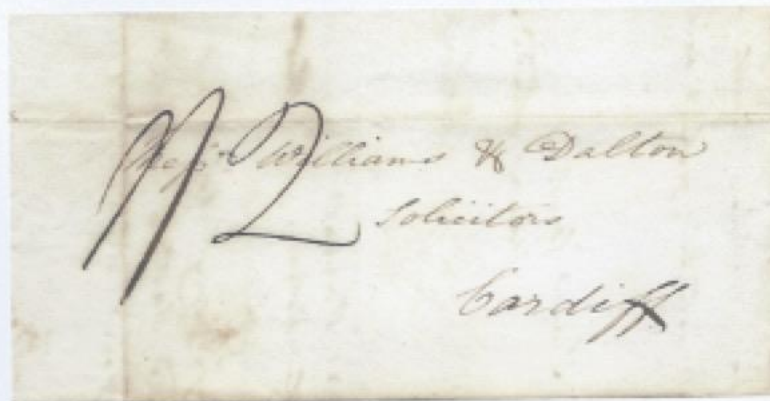 Messrs Williams & Dalton
Solicitors
Cardiff